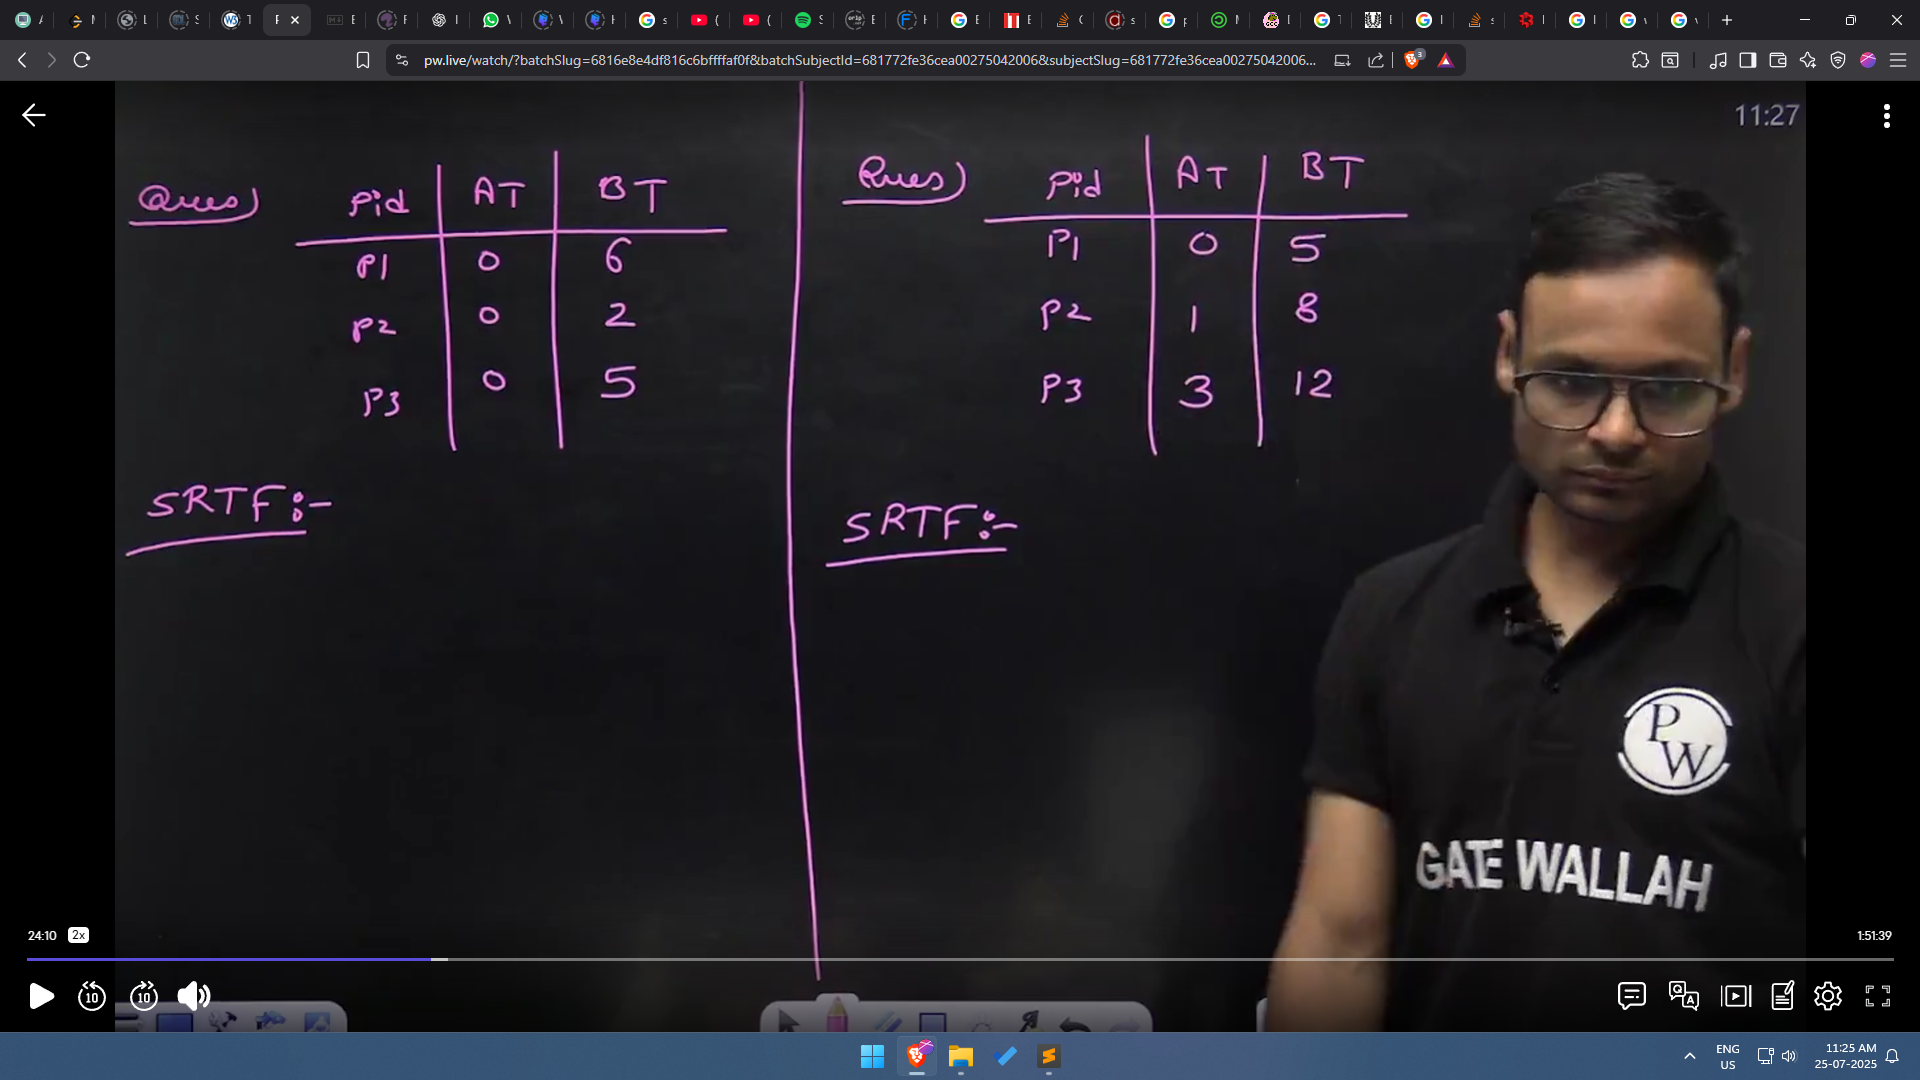 pw.live/watch/?batchSlug=6816e8e4df816c6bffffaf0f&batchSubjectId=681772fe36cea00275042006&subjectSlug=681772fe36cea00275042006...
3
11:27
Ques) Pid AT BT
P1 0 6
P2 0 2
P3 0 5
SRTF:-
Ques) Pid AT BT
P1 0 5
P2 1 8
P3 3 12
SRTF:-
PW
GATE WALLAH
24:10 2x
1:51:39
10 10
ENG
US
11:25 AM
25-07-2025